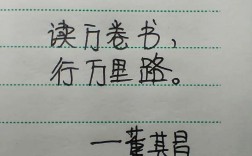 读万卷书，
行万里路。
—董其昌